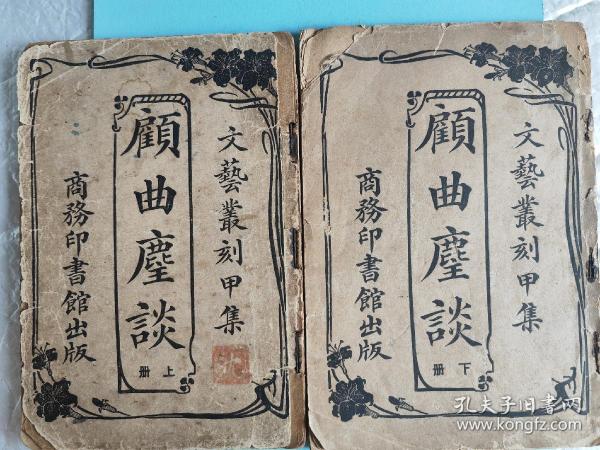 文藝叢刻甲集
顧曲麈談
上册
商務印書館出版
文藝叢刻甲集
顧曲麈談
下册
商務印書館出版
孔夫子旧书网
www.kongfz.com